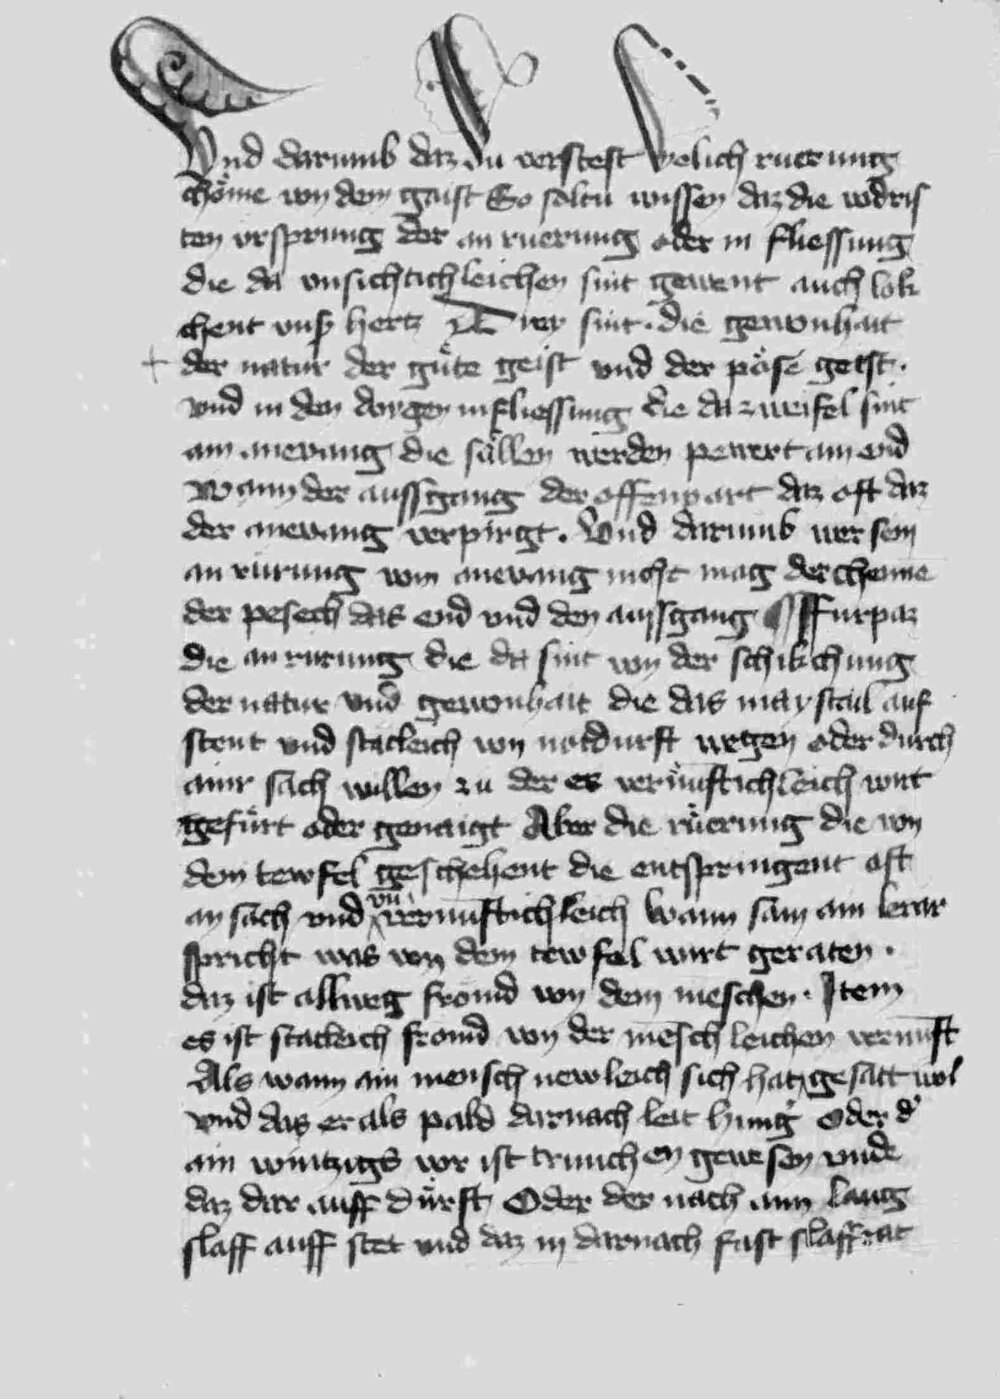 Vnd darumb daz du verstest welich ruerung
chöme von dem gaist So soltu wissen daz die vodris
ten vrsprung der an ruerung oder in fliessung
die da vnsichtichleichen sint gewent auch lok
chent vnß hertz Drey sint . die gewonhait
der natur der güte geist vnd der pöse geist .
vnd in den dorgen in fliessung die da zweifel sint
am anevang die süllen werden pewert am end
Wann der aussgang der offenpart daz oft daz
der anevang verpirgt . Vnd darumb wer sein
an rürung vom anevang nicht mag derchenne
der pesech das end vnd den aussgang ¶ Furpaz
die an rurung die da sint von der schikchung
der natur vnd gewonhait die das maystail auf
stent vnd stätleich von notdurft wegen oder durch
ainr sach willen zu der es vernüftichleich wirt
gefürt oder genaigt Aber die rüerung die von
dem tewfel geschehent die entspringent oft
an sach vnd vnvernuftichleich Wann sam ain lerar
spricht was von dem tewfel wirt geraten .
daz ist allweg fromd von dem meschen . Item
es ist stätleich fromd von der meschleichen vernuft
Als wann ain mensch newleich sich hat gesatt wol
vnd das er als pald darnach leit hung' Oder d'
ain wintzigs vor ist trunchen gewesen vnd
daz dar auff dürst Oder der nach aim lang
slaff auff stet vnd daz in darnach fast slaffrat